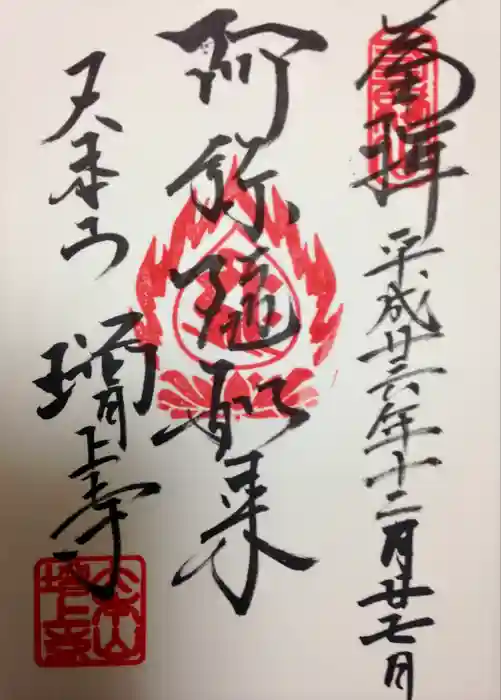 平成廿六年十二月廿七日
阿弥陀如来
大本山 増上寺
大本山
増上寺